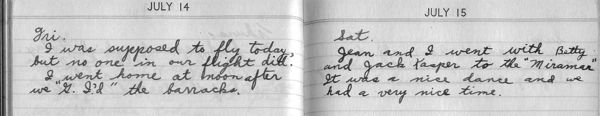 JULY 14
Fri.
I was supposed to fly today,
but no one in our flight did.
I went home at noon after
we "G. I'd" the barracks.
JULY 15
Sat.
Jean and I went with Betty
and Jack Kasper to the "Miramar"
It was a nice dance and we
had a very nice time.